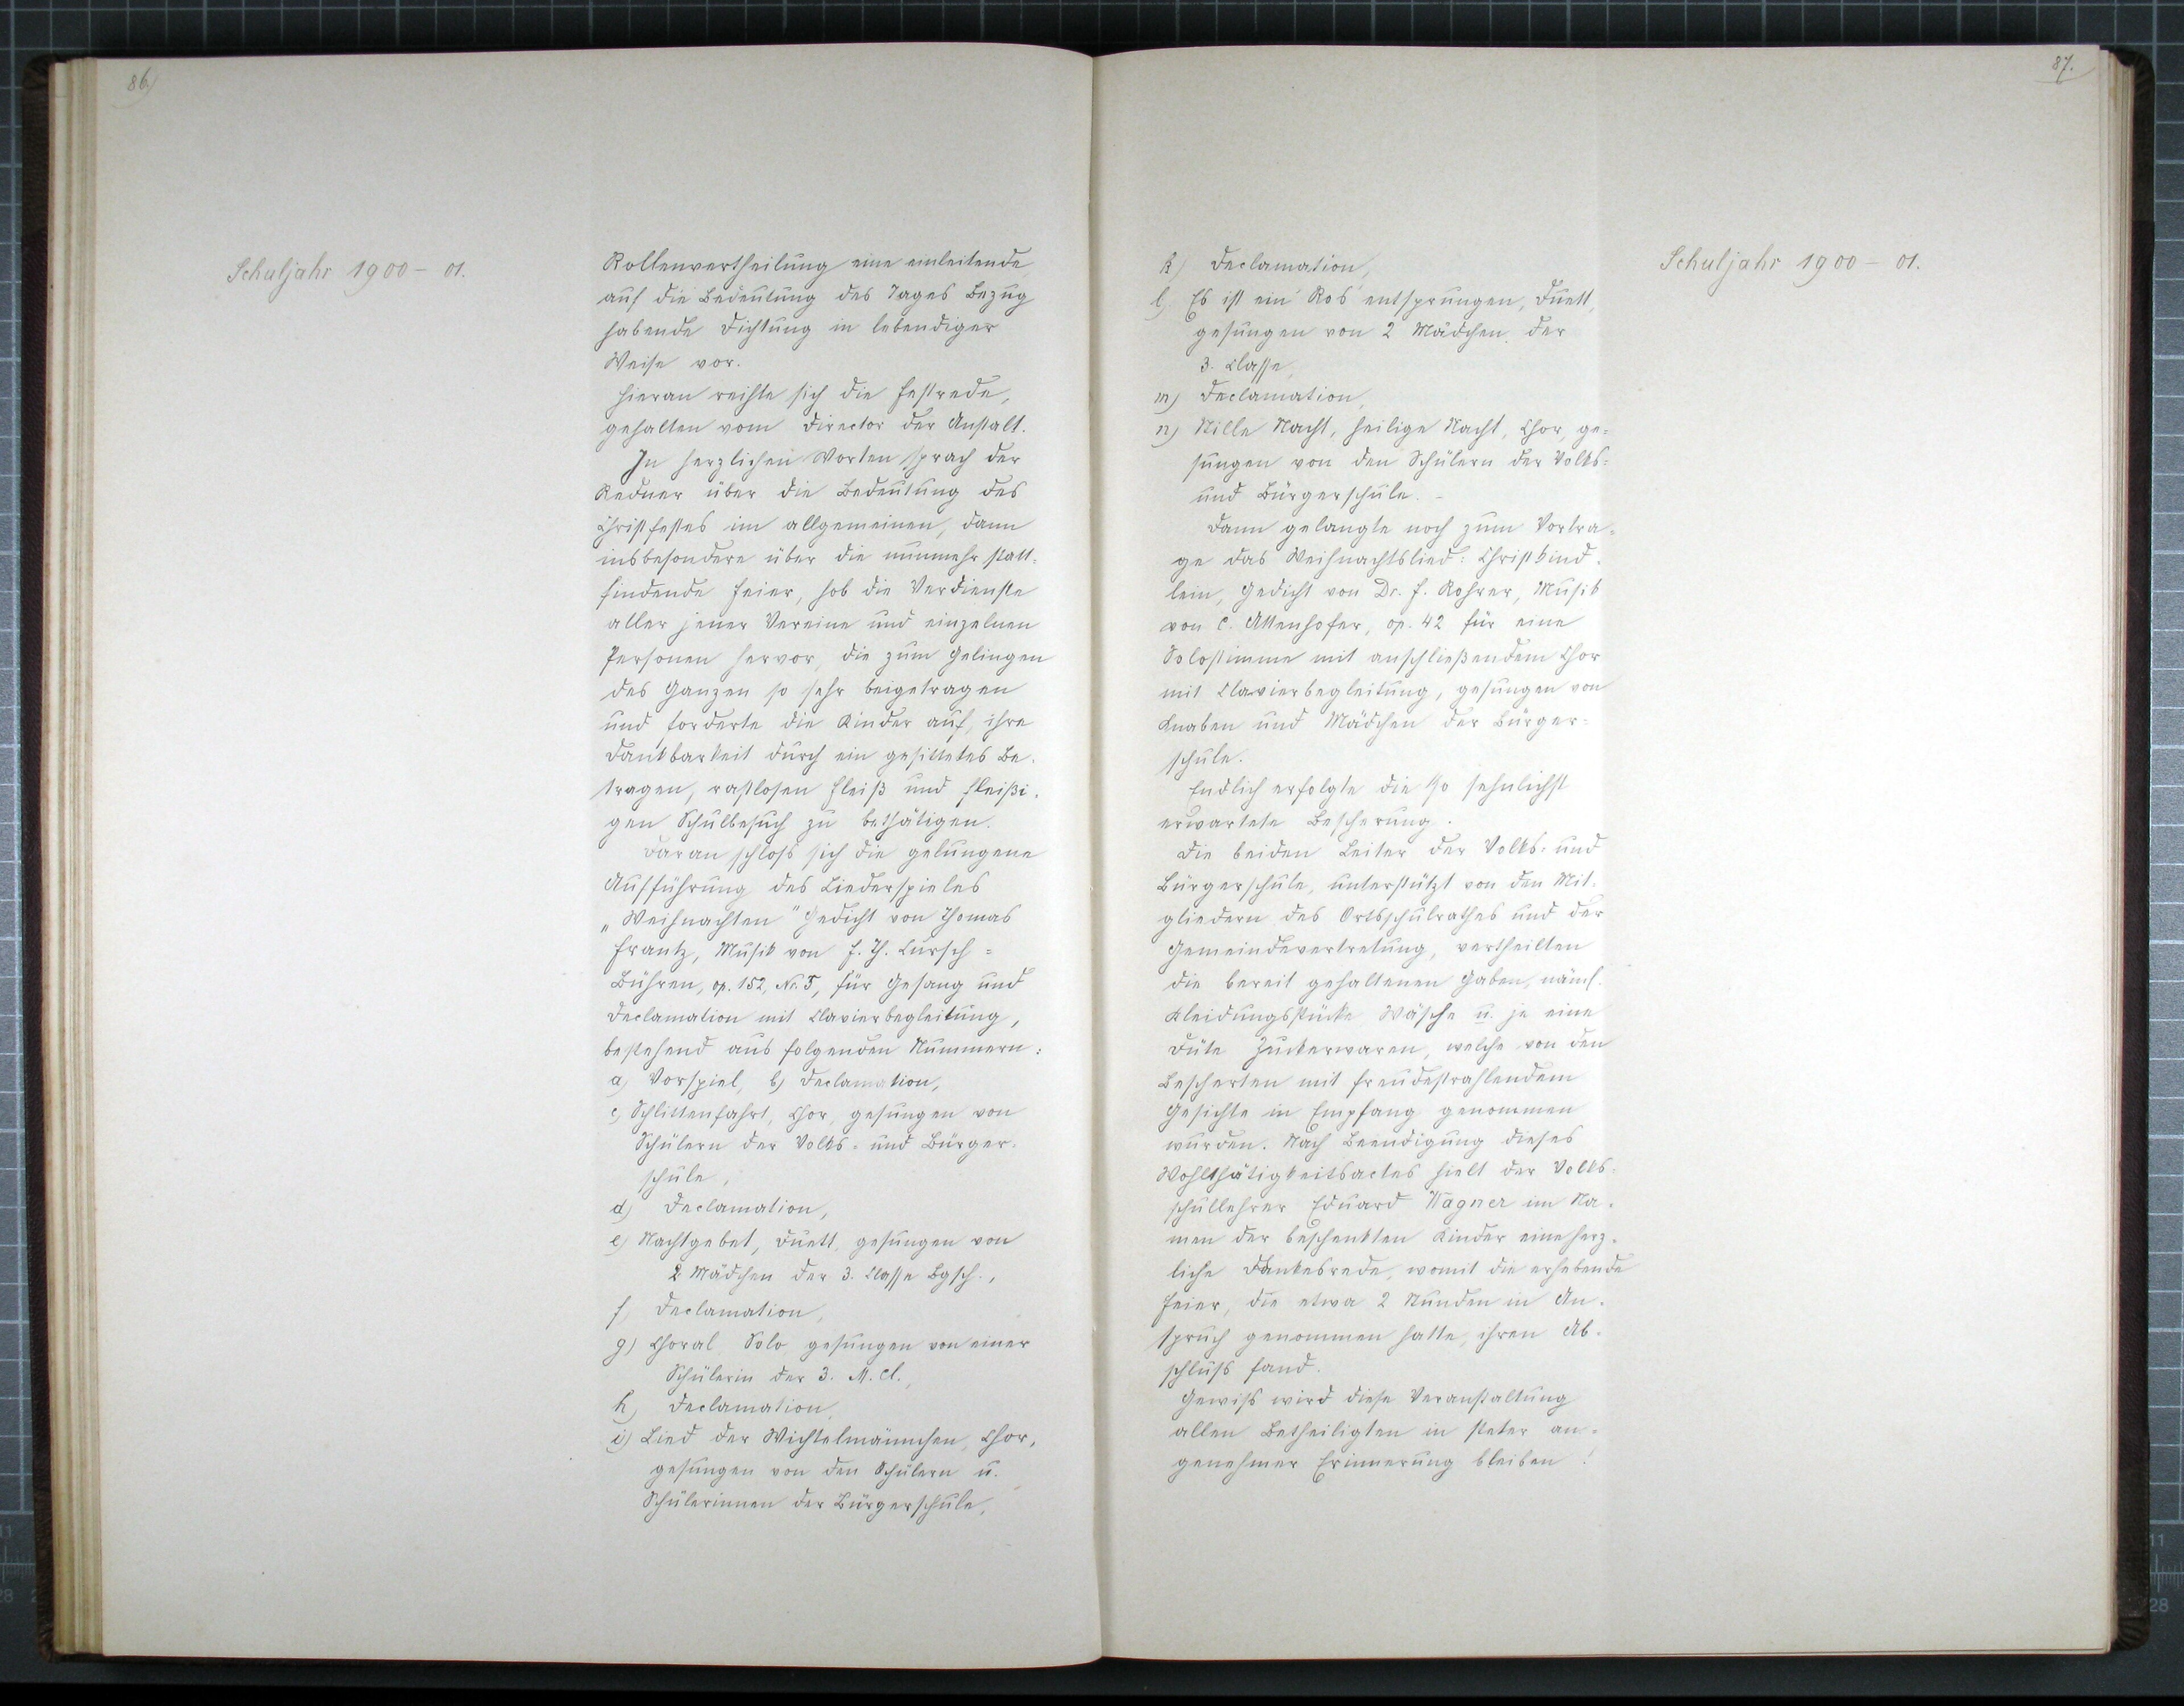 86)
Schuljahr 1900 - 01.
Rollenvertheilung eine einleitende,
auf die Bedeutung des Tages Bezug
habende Dichtung in lebendiger
Weise vor.
Hieran reihte sich die Festrede,
gehalten vom Director der Anstalt.
In herzlichen Worten sprach der
Redner über die Bedeutung des
Christfestes im allgemeinen, dann
insbesondere über die nunmehr statt-
findende Feier, hob die Verdienste
aller jener Vereine und einzelnen
Personen hervor, die zum Gelingen
des Ganzen so sehr beigetragen
und forderte die Kinder auf, ihre
Dankbarkeit durch ein gesittetes Be-
tragen, rastlosen Fleiß und fleißi-
gen Schulbesuch zu bethätigen.
Daran schloss sich die gelungene
Aufführung des Liederspieles
„Weihnachten" Gedicht von Thomas
Frantz, Musik von F. Th. Cursch-
Bühren, op. 152, Nr. 5, für Gesang und
Declamation mit Clavierbegleitung,
bestehend aus folgenden Nummern:
a) Vorspiel, b) Declamation,
c) Schlittenfahrt, Chor, gesungen von
Schülern der Volks- und Bürger-
schule,
d) Declamation,
e) Nachtgebet, Duett, gesungen von
2 Mädchen der 3. Classe Bgsch.,
f) Declamation,
g) Choral, Solo, gesungen von einer
Schülerin der 3. M. Cl.,
h) Declamation,
i) Lied der Wichtelmännchen, Chor,
gesungen von den Schülern u.
Schülerinnen der Bürgerschule,
87.
Schuljahr 1900 - 01.
k) Declamation,
l) Es ist ein Ros' entsprungen, Duett,
gesungen von 2 Mädchen der
3. Classe,
m) Declamation,
n) Stille Nacht, heilige Nacht, Chor, ge-
sungen von den Schülern der Volks-
und Bürgerschule. -
Dann gelangte noch zum Vortra-
ge das Weihnachtslied: Christkind-
lein, Gedicht von Dr. F. Rohrer, Musik
von C. Attenhofer, op. 42 für eine
Solostimme mit anschließendem Chor
mit Clavierbegleitung, gesungen von
Knaben und Mädchen der Bürger-
schule.
Endlich erfolgte die so sehnlichst
erwartete Bescherung.
Die beiden Leiter der Volks- und
Bürgerschule, unterstützt von den Mit-
gliedern des Ortsschulrathes und der
Gemeindevertretung, vertheilten
die bereit gehaltenen Gaben, näml.
Kleidungsstücke, Wäsche u. je eine
Düte Zuckerwaren, welche von den
Bescherten mit freudestrahlendem
Gesichte in Empfang genommen
wurden. Nach Beendigung dieses
Wohlthätigkeitsactes hielt der Volks-
schullehrer Eduard Wagner im Na-
men der beschenkten Kinder eine herz-
liche Dankesrede, womit die erhebende
Feier, die etwa 2 Stunden in An-
spruch genommen hatte, ihren Ab-
schluss fand.
Gewiss wird diese Veranstaltung
allen Betheiligten in steter an-
genehmer Erinnerung bleiben!